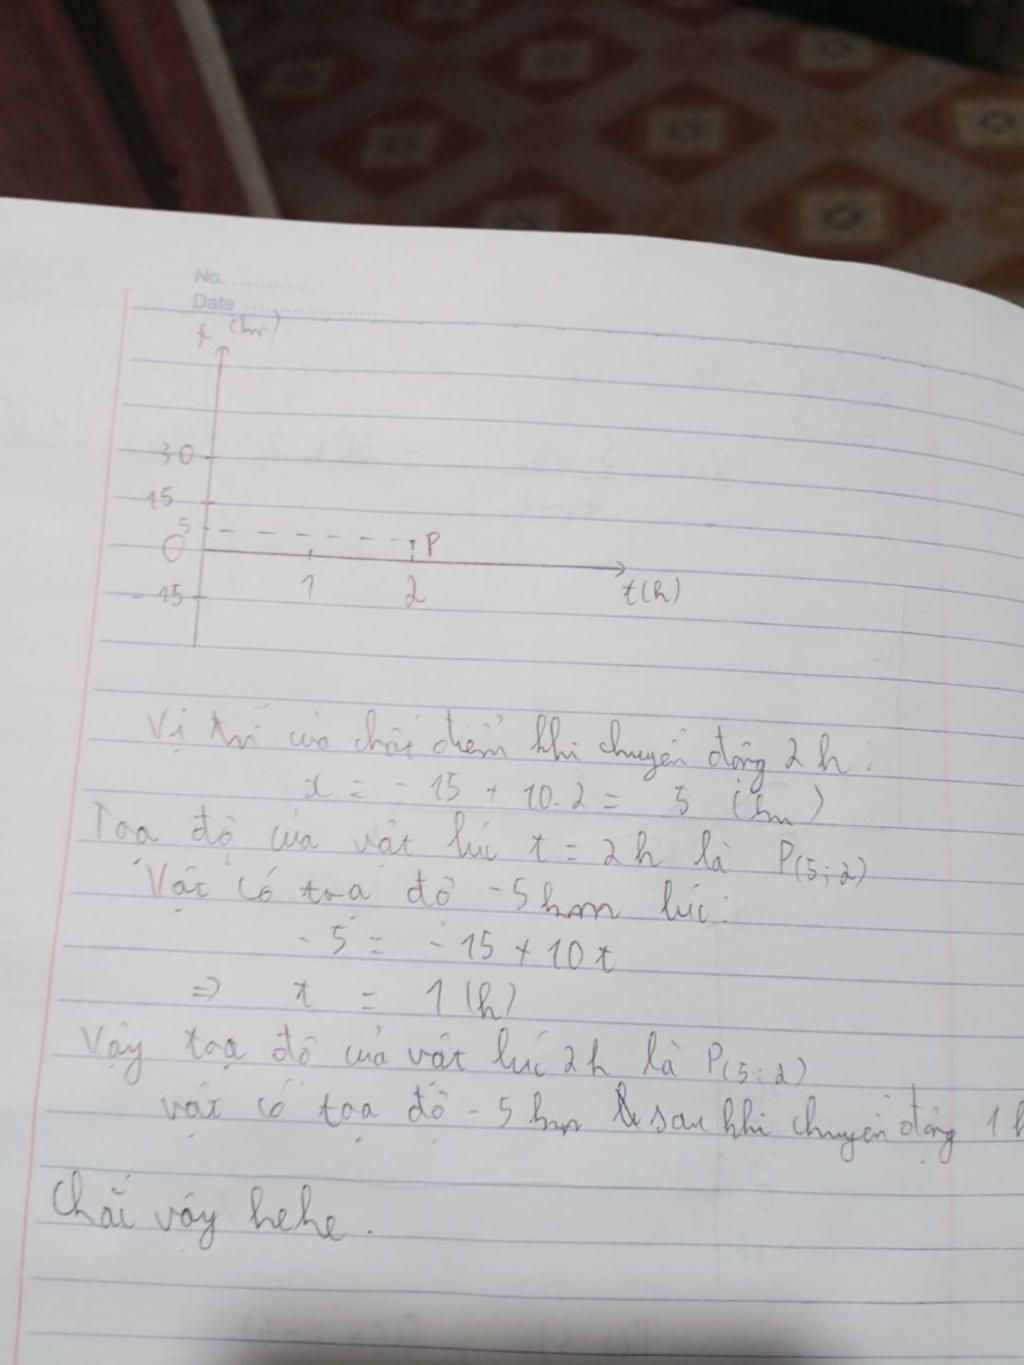 No.
Date
x (km)
30
15
5
P
O
1
2
t(h)
-15
Vị trí của chất điểm khi chuyển động 2h:
x = -15 + 10.2 = 5 (km)
Toạ độ của vật lúc t = 2h là P(5;2)
Vật có toạ độ -5km lúc:
-5 = -15 + 10t
=> t = 1(h)
Vậy toạ độ của vật lúc 2h là P(5;2)
vật có toạ độ -5km sau khi chuyển động 1h
Chắc vậy hehe.